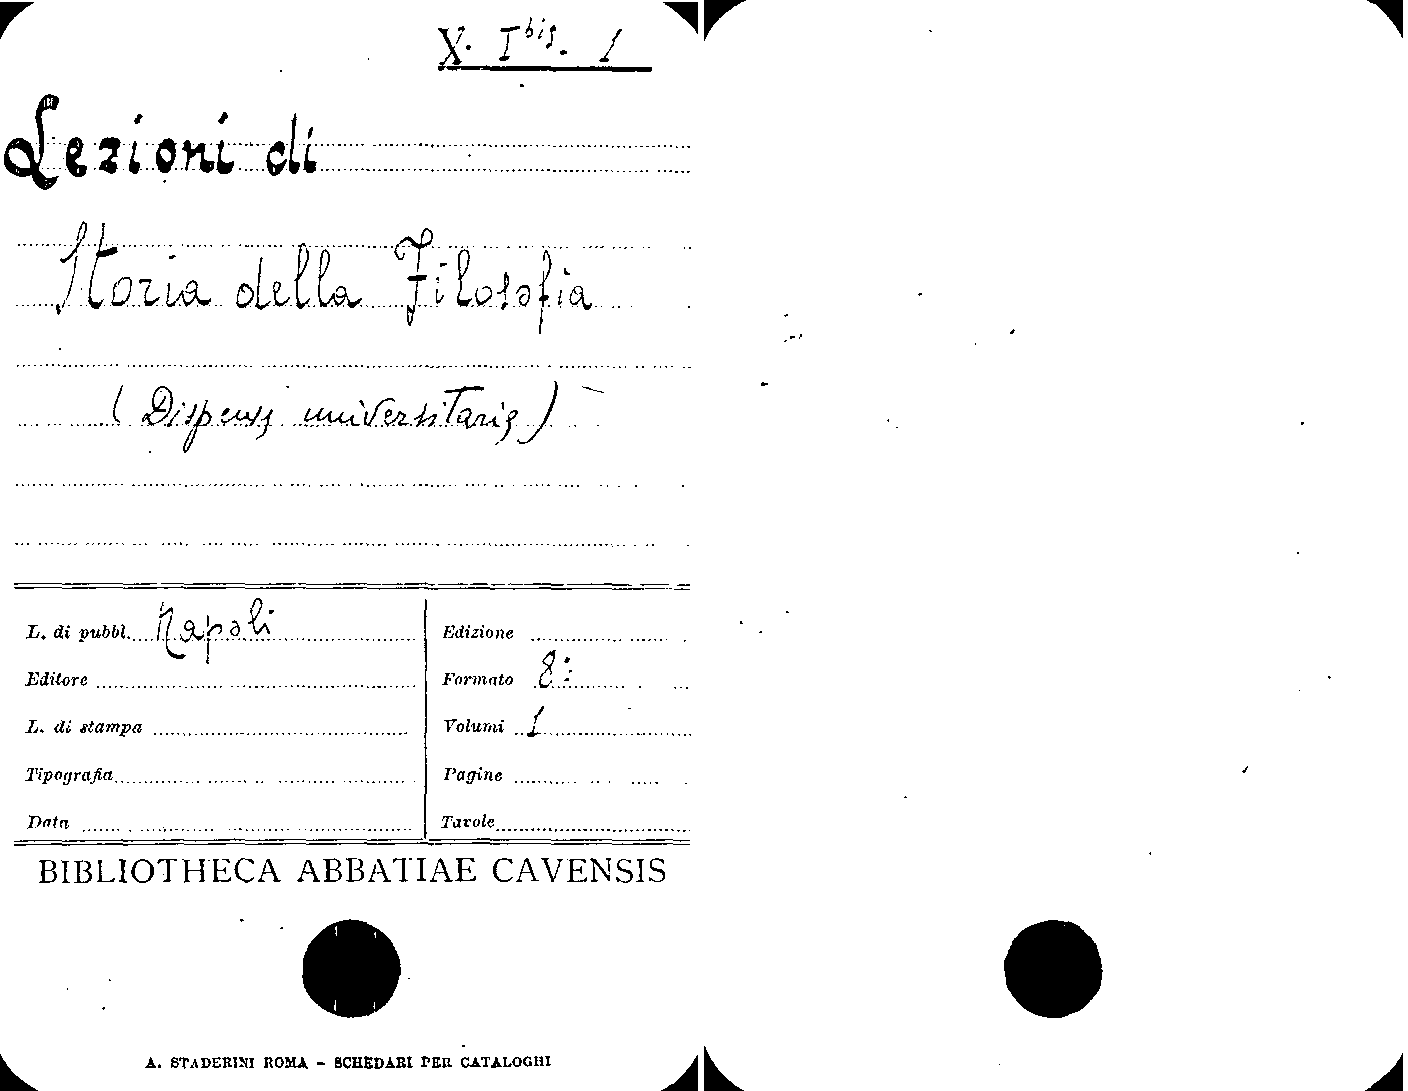 X. I bis. 1
Lezioni di
Storia della Filosofia
(Dispense universitarie)
L. di pubbl. Napoli
Edizione
Editore
Formato 8:
L. di stampa
Volumi 1
Tipografia
Pagine
Data
Tavole
BIBLIOTHECA ABBATIAE CAVENSIS
A. STADERINI ROMA - SCHEDARI PER CATALOGHI